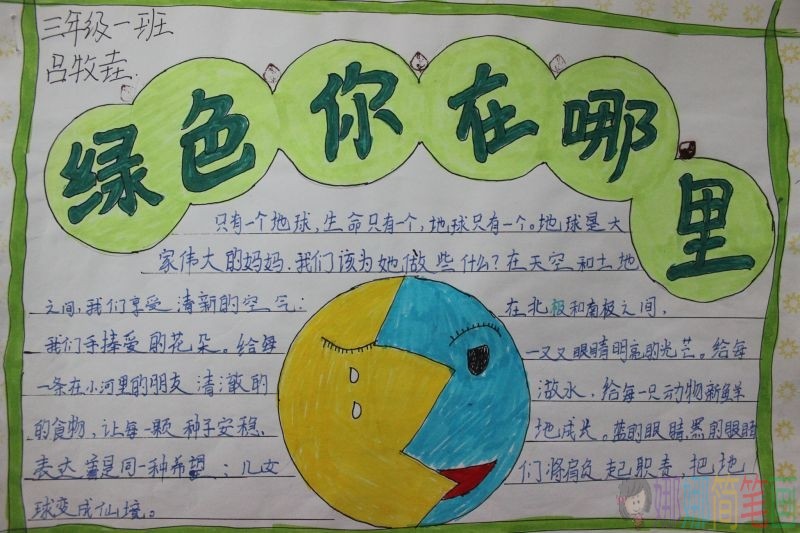 三年级一班
吕牧垚
绿色你在哪里
只有一个地球，生命只有一个，地球只有一个。地球是大
家伟大的妈妈.我们该为她做些什么？在天空和土地
之间,我们享受清新的空气； 在北极和南极之间，
我们手捧爱的花朵。给每 一又又眼睛明亮的光芒。给每
一条在小河里的朋友清澈的 激水，给每一只动物新鲜
的食物，让每一颗种子安稳、 地成长。蓝的眼睛,黑的眼睛
表达是同一种希望；儿女 们将肩负起职责，把地
球变成仙境。
简笔画